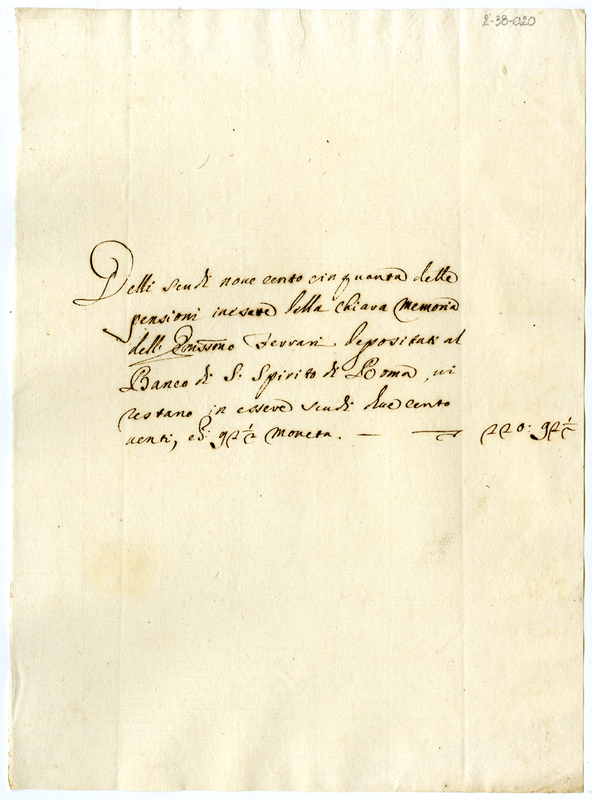 2-38-020
Delli scudi nove cento cinquanta delle
pensioni inesate della chiara memoria
dell' Ferrari depositati al
Banco di S. Spirito di Roma, vi
restano in essere scudi due cento
venti, e 92½ moneta. — 220: 92½